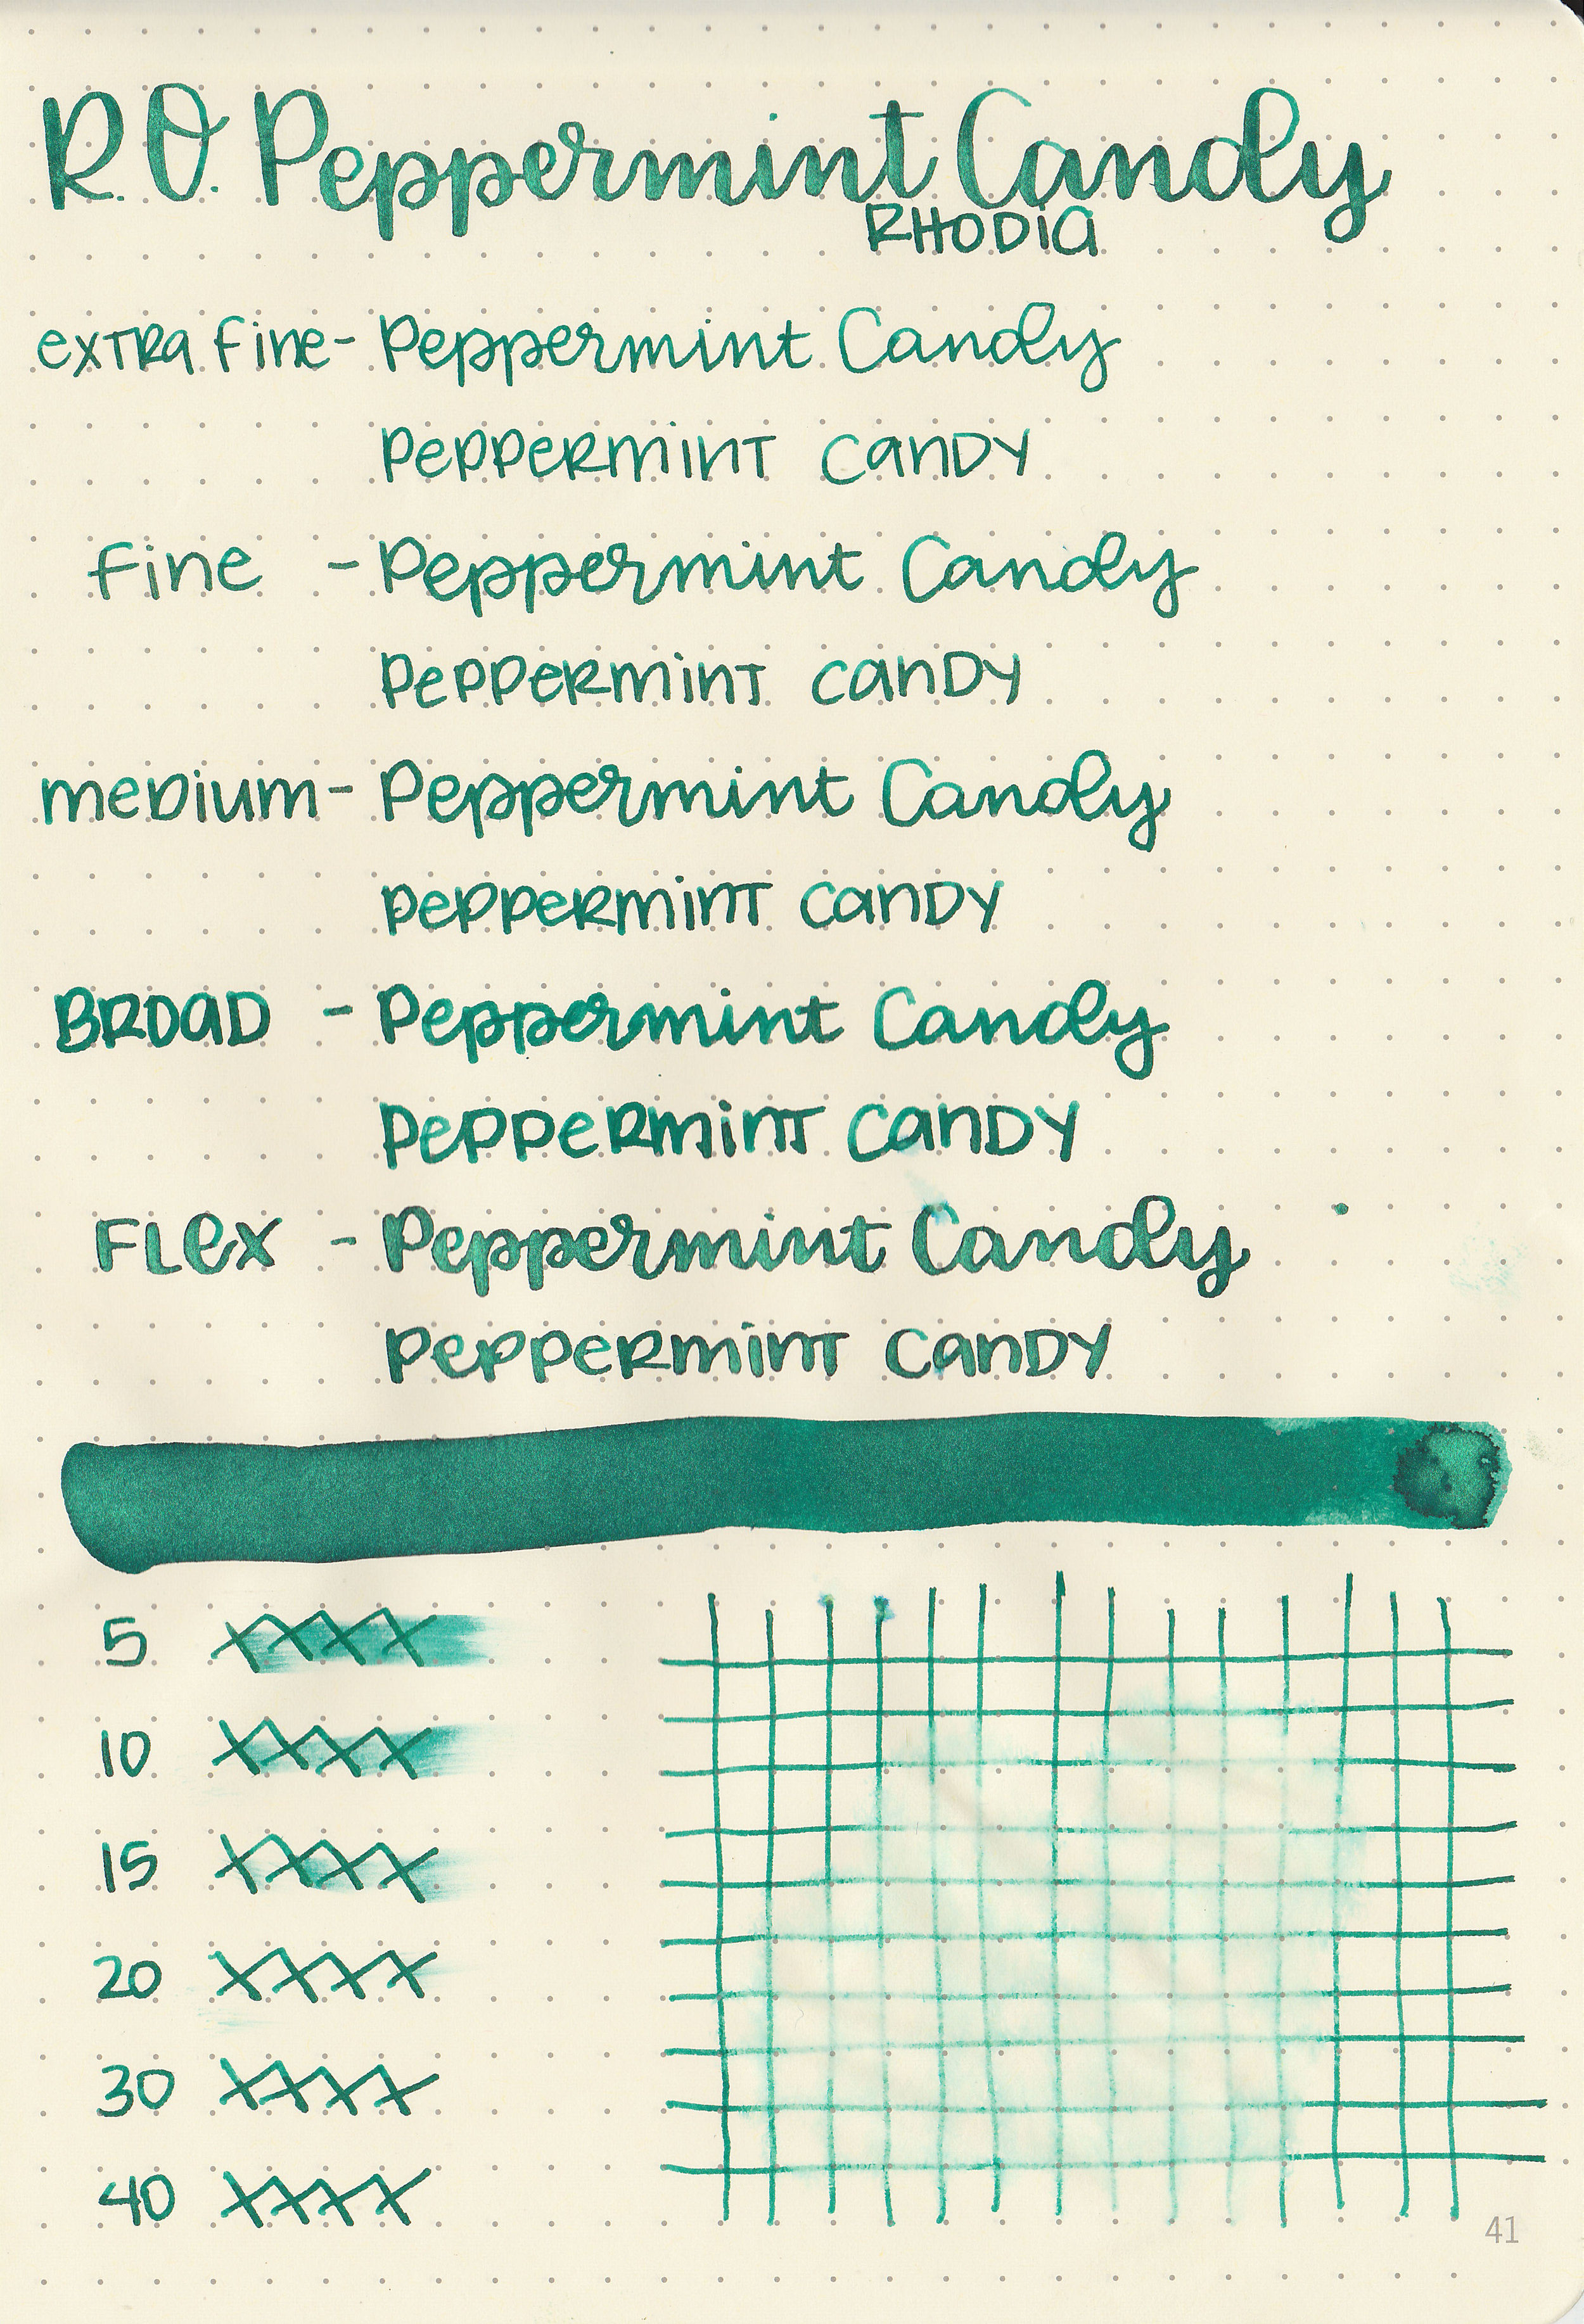 R.O. Peppermint Candy
RHODIA
extra fine - Peppermint Candy
Peppermint Candy
fine - Peppermint Candy
Peppermint Candy
medium - Peppermint Candy
Peppermint Candy
BROAD - Peppermint Candy
Peppermint Candy
FLex - Peppermint Candy
Peppermint Candy
5 XXXX
10 XXXX
15 XXXX
20 XXXX
30 XXXX
40 XXXX
41